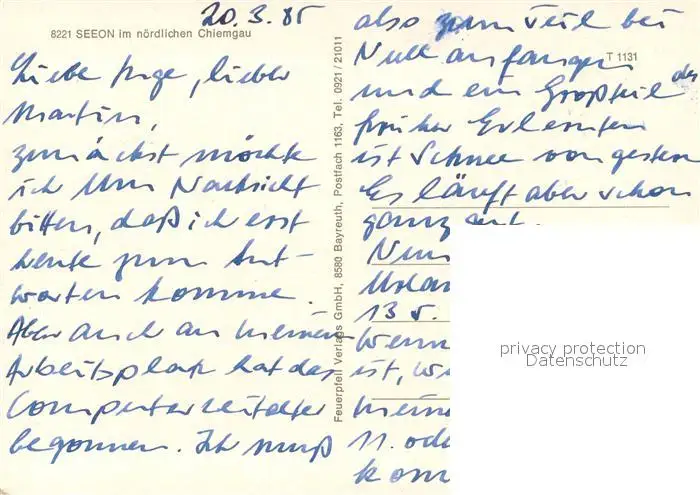 20.3.85
8221 SEEON im nördlichen Chiemgau
Liebe Inge, lieber
Martin,
zunächst möchte
ich um Nachsicht
bitten, daß ich erst
heute zum Ant-
worten komme.
Aber auch an meinem
Arbeitsplatz hat das
Computerzeitalter
begonnen. Ich muß
Feuerpfeil Verlags GmbH, 8580 Bayreuth, Postfach 1163, Tel. 0921 / 21011
T 1131
also zum Teil bei
Null anfangen
und ein Großteil des
früher Erlernten
ist Schnee von gestern
Es läuft aber schon
ganz gut.
Nun
13 5.
Wenn
ist, we
meine
11. ode
kom
privacy protection
Datenschutz